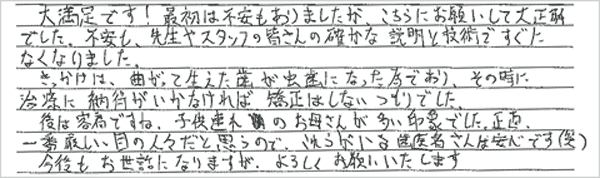 大満足です！最初は不安もありましたが、こちらにお願いして大正解
でした。不安も、先生やスタッフの皆さんの確かな説明と技術ですぐに
なくなりました。
きっかけは、曲がって生えた歯が虫歯になった為であり、その時に
治療に納得がいかなければ矯正はしないつもりでした。
後は客層ですね。子供連れのお母さんが多い印象でした。正直
一番厳しい目の人々だと思うので、それらがいる歯医者さんは安心です(笑)
今後もお世話になりますが、よろしくお願いいたします